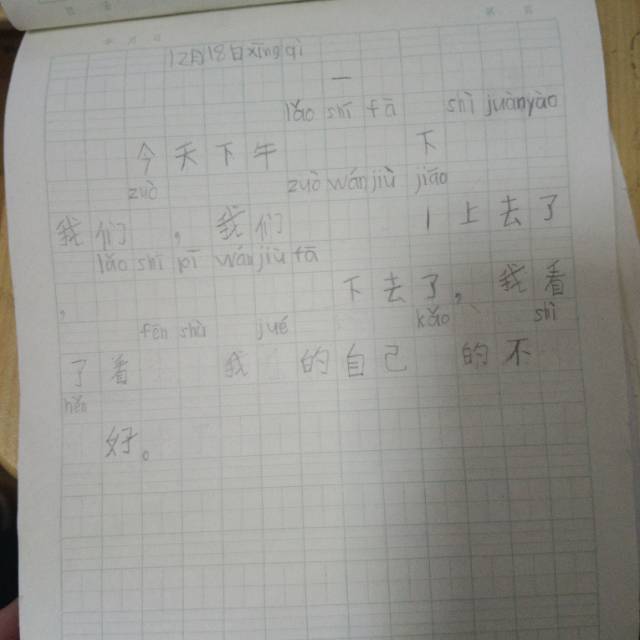 12月18日xīng qì
一
lǎo shī fā shì juànyào
今天下午 下
zuò zuò wán jiù jiāo
我们,我们 上去了
lǎo shī pī wán jiù fā
,下去了,我看
fēn shù jué kǎo shì
了看 我 的自己 的不
hěn
好。